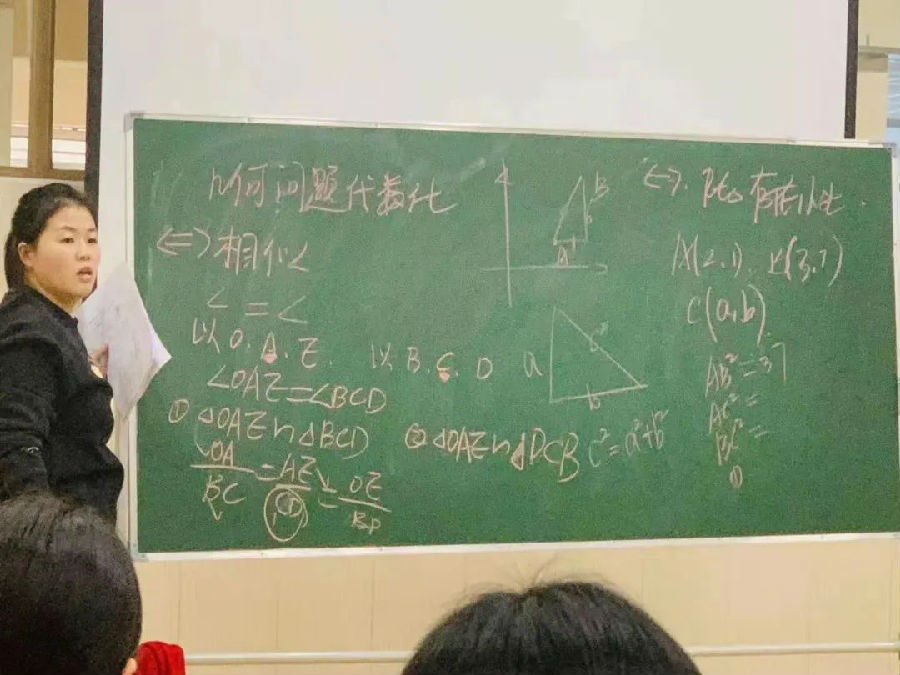 几何问题代数化
<=> 相似∠
∠ = ∠
以 O. A. E. 以 B. C. D
∠OAE=∠BCD
① △OAE∽△BCD ② △OAE∽△DCB
OA/BC = AE/CD = OE/BD
B
a
a
c
b
c²=a²+b²
<=>. Rt△ 存在性.
A(2,1).
C(a,b)
AB²=37
AC²=
BC²=
①